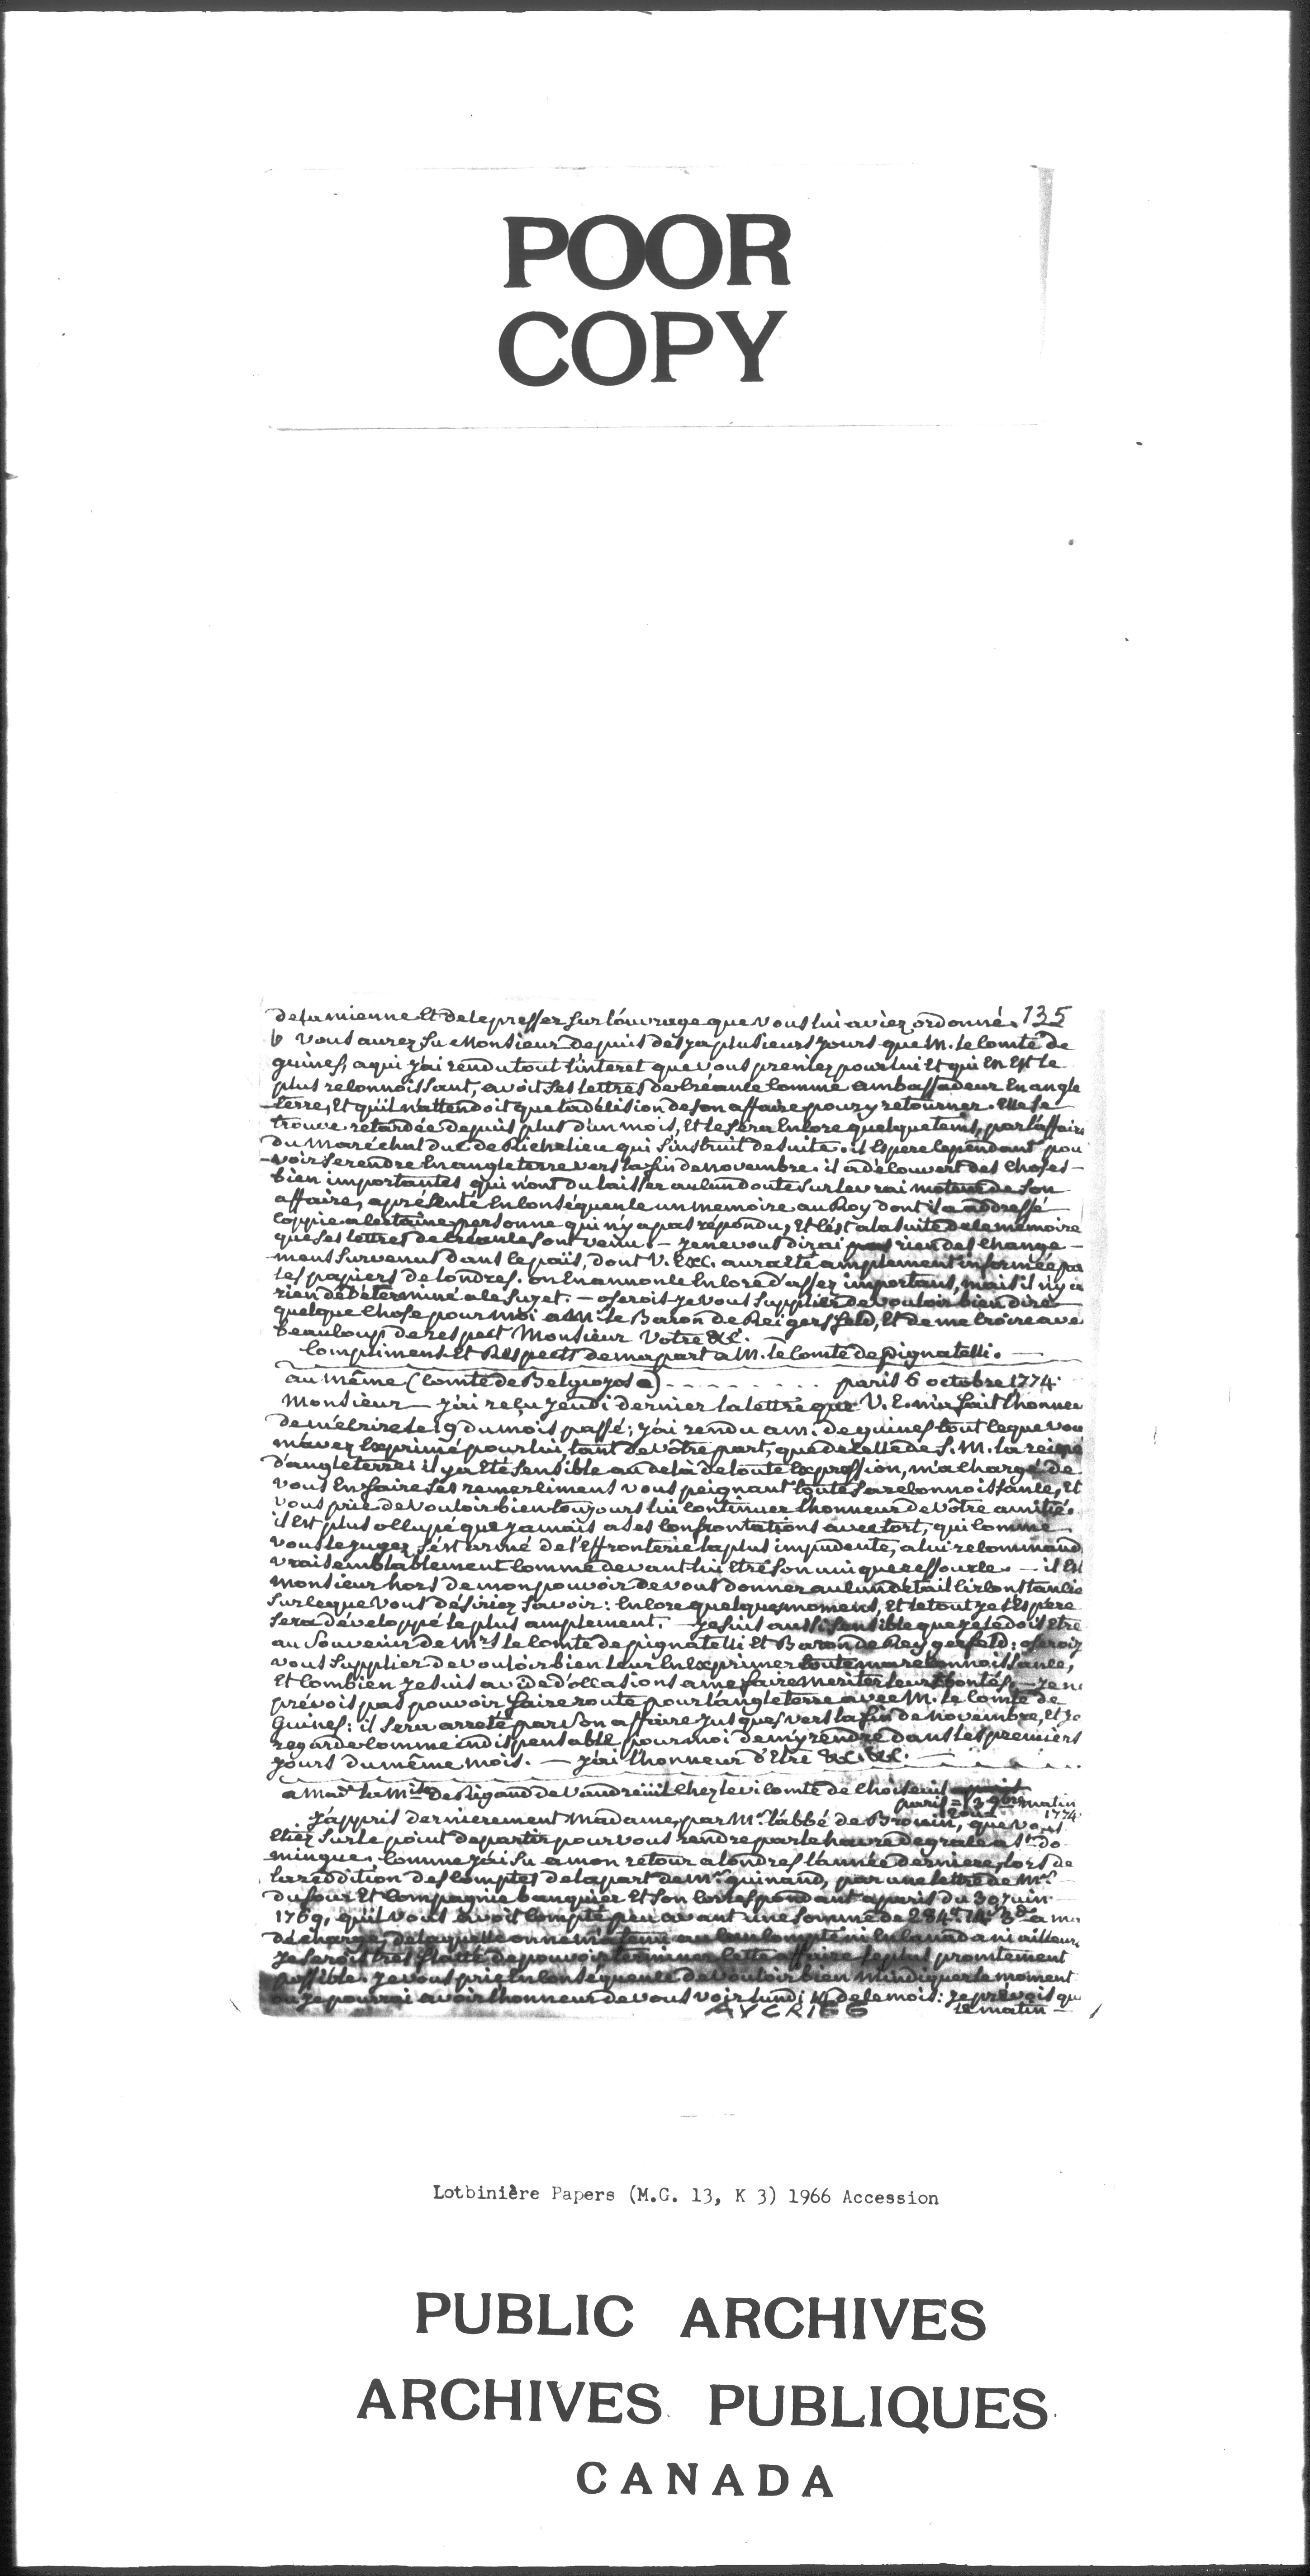 POOR
COPY
de la mienne et de le presser sur l'ouvrage que vous lui aviez ordonné. 135
Vous aurez su Monsieur depuis desja plusieurs jours que M. le comte de
guines, a qui j'ai rendu tout l'interet que vous preniez pour lui et qui en est le
plus reconnoissant, avoit ses lettres de créance comme ambassadeur en angle
-terre, et qu'il n'attendoit que la décision de son affaire pour y retourner. Elle se
trouve retardée depuis plus d'un mois, et le sera encore quelque tems, par l'affaire
du Maréchal Duc de Richelieu qui s'instruit de suite. il espere cependant pou
-voir se rendre en angleterre vers la fin de novembre. il a découvert des choses -
bien importantes qui n'ont du laisser aucun doute sur le vrai moteur de son
affaire, a présenté en conséquence un memoire au Roy dont il a addressé
coppie a certaine personne qui n'y a pas répondu, et c'est a la suite de ce memoire
que ses lettres de créance sont venu. - je ne vous dirai pas rien des change -
mens survenus dans le païs, dont V. Exc. aura eté amplement informée pa
les papiers de londres. on en annonce encore d'assez importans, mais il n'y a
rien de déterminé a ce sujet. - oserois-je vous supplier de vouloir bien dire
quelque chose pour moi a M. le Baron de Reigersfeld, et de me croire ave
beaucoup de respect Monsieur Votre &c.
Compliment et Respects de ma part a M. le Comte de pignatelli. —
au même (comte de Belgiojoso) . . . . . . . . paris 6 octobre 1774.
Monsieur — j'ai reçu jeudi dernier la lettre que V. E. m'a fait l'honneu
de m'écrire le 19 du mois passé; j'ai rendu a m. de guines tout ce que vou
m'avez exprimé pour lui, tant de vôtre part, que de celle de S. M. la reine
d'angleterre: il y a eté sensible au dela de toute expression, m'a chargé de
vous en faire ses remerciments vous peignant toute sa reconnoissance, et
vous prie de vouloir bien toujours lui continuer l'honneur de vôtre amitié.
il est plus occupé que jamais a ses confrontations avec tort, qui comme
vous le jugez s'est armé de l'effronterie la plus impudente, a lui recommand
vraisemblablement comme devant lui etre son unique ressource. — il est
Monsieur hors de mon pouvoir de vous donner aucun détail circonstancié
sur ce que vous désiriez savoir: encore quelques momens, et le tout je l'espere
sera développé le plus amplement. — je suis aussi sensible que je le dois etre
au souvenir de Mrs le comte de pignatelli et Baron de Reygersfeld: oserois
vous supplier de vouloir bien leur en exprimer toute ma reconnoissance,
et combien je suis avide d'occasions a me faire meriter leurs bontés. — je ne
prévois pas pouvoir faire route pour l'angleterre avec M. le comte de
Guines: il sera arreté par son affaire jusques vers la fin de novembre, et je
regarde comme indispensable pour moi de m'y rendre dans les premiers
jours du même mois. — j'ai l'honneur d'etre &c. &c. —
a Made la Mise de Rigaud de Vaudreüil chez le vicomte de choiseuil
paris = 13 9bre matin
1774.
J'appris dernierement Madame, par Mr. l'abbé de Brouin, que vous
etiez sur le point de partir pour vous rendre par le havre de grace a St. do
mingue. comme j'ai su a mon retour a londres l'année derniere, lors de
la reddition des comptes de la part de Mr. guinand, par une lettre de Mrs
dufour et compagnie banquier et son correspondant a paris du 30 juin
1769, qu'il vous avoit compté peu avant une somme de 284 a ma
décharge, de laquelle on ne m'a tenu aucun compte ni en canada ni ailleurs,
je serois tres flatté de pouvoir terminer cette affaire le plus promtement
possible. je vous prie en conséquence de vouloir bien m'indiquer le moment
ou je pourrai avoir l'honneur de vous voir lundi de ce mois: je prévois qu
le matin —
Lotbinière Papers (M.G. 13, K 3) 1966 Accession
PUBLIC ARCHIVES
ARCHIVES PUBLIQUES
CANADA